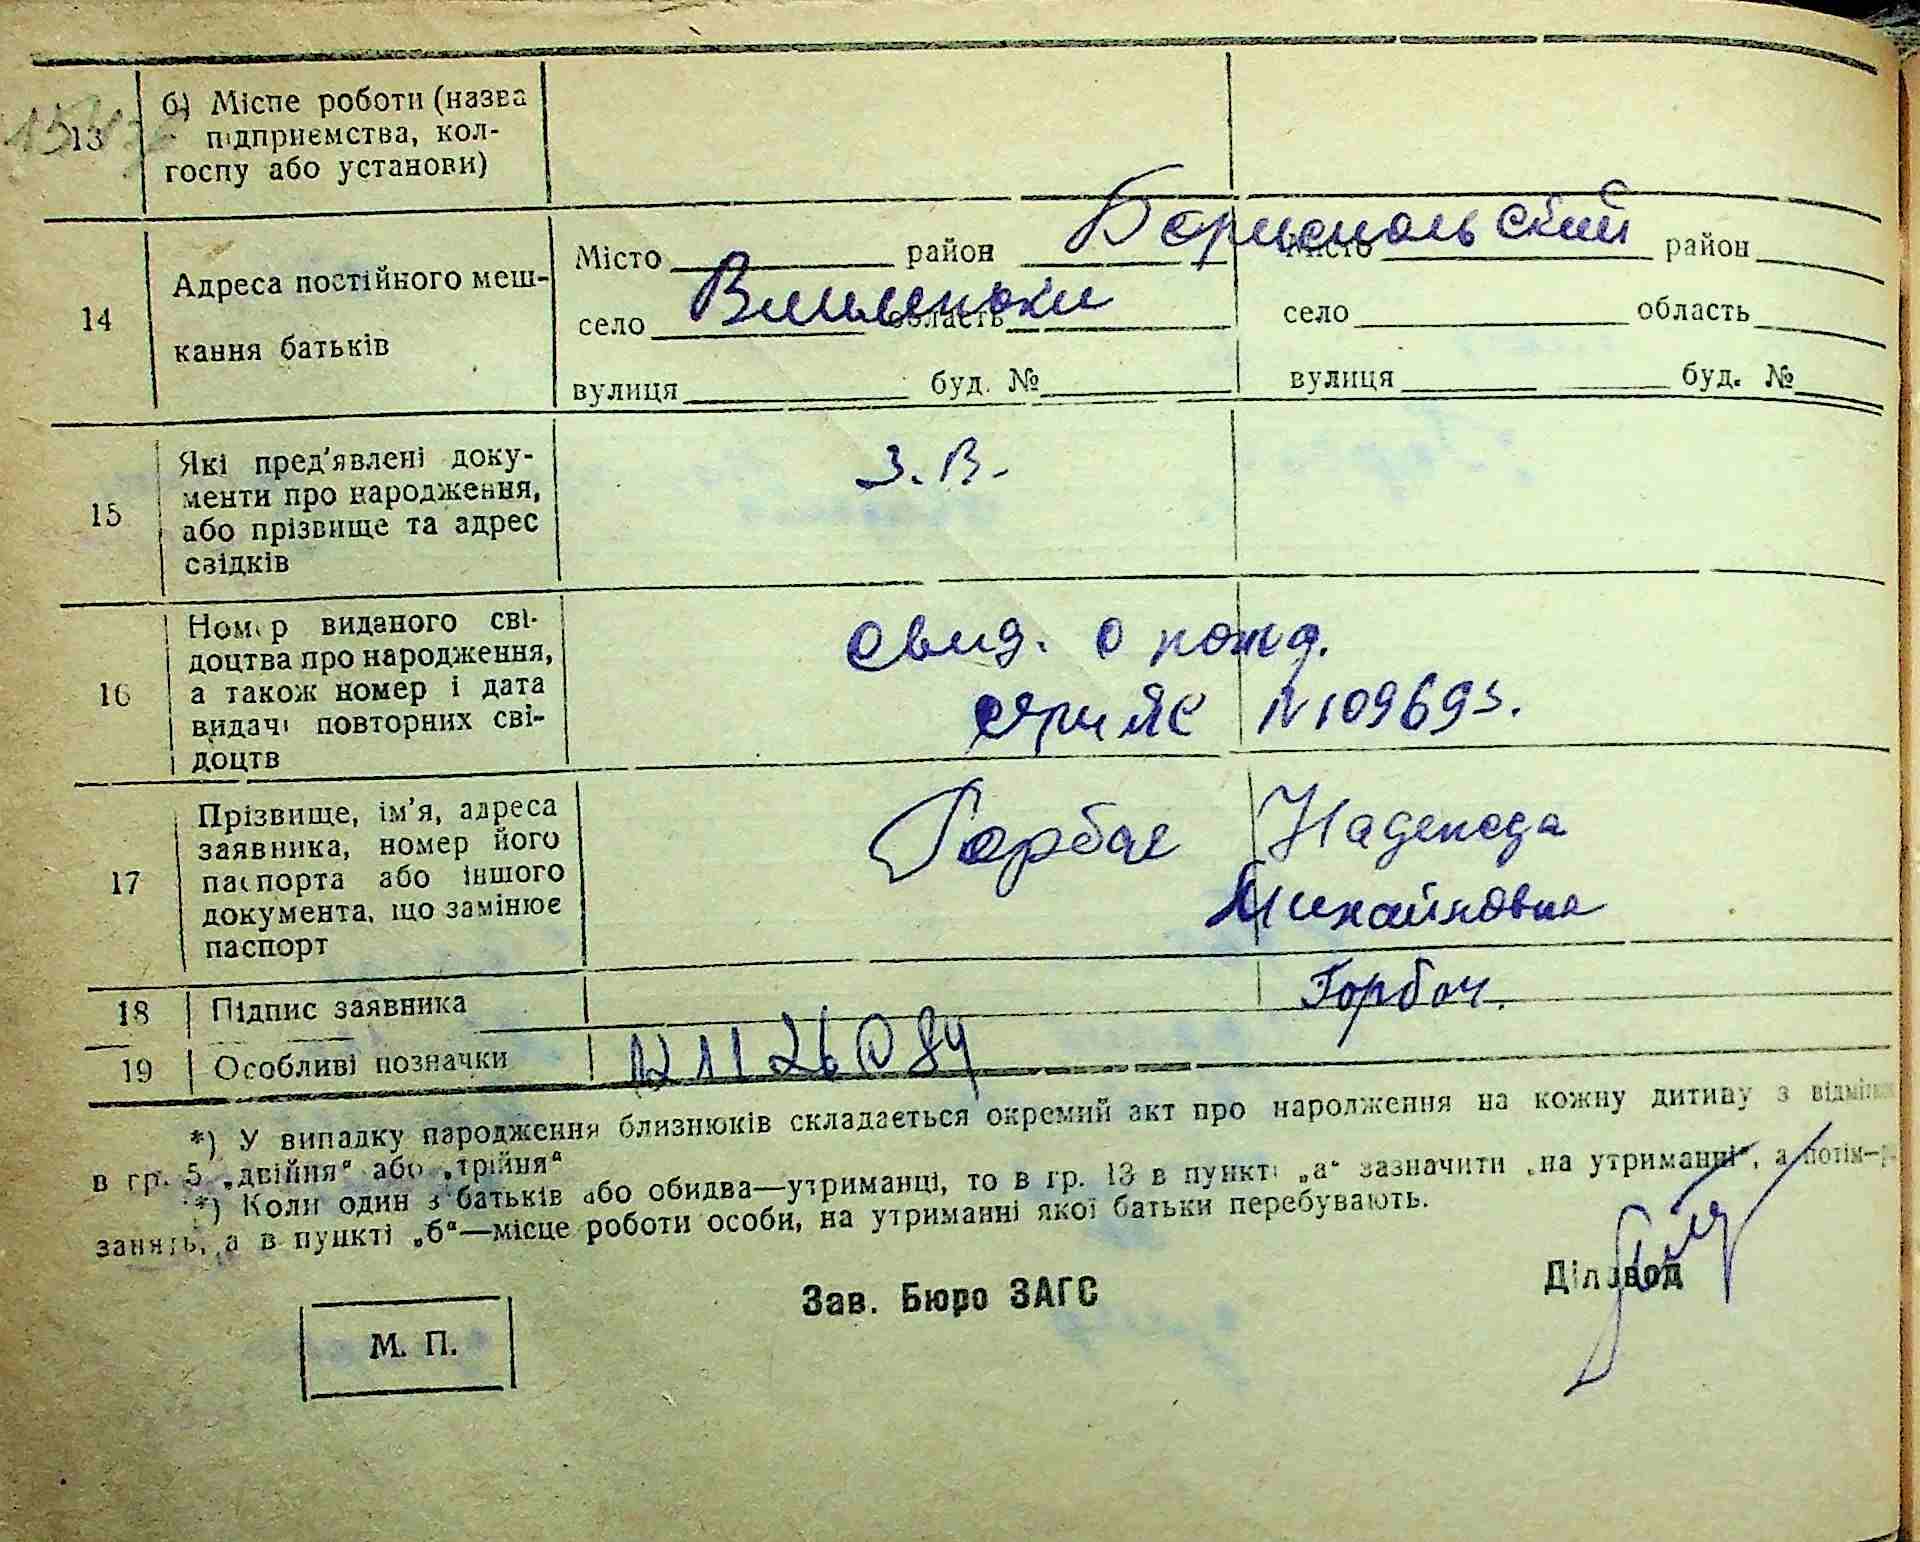 13
б) Місце роботи (назва
підприємства, кол-
госпу або установи)
14
Адреса постійного меш-
кання батьків
Місто район Бориспольский Місто район
село Вишеньки область село область
вулиця буд. № вулиця буд. №
15
Які пред'явлені доку-
менти про народження,
або прізвище та адрес
свідків
З. В.
16
Номер виданого сві-
доцтва про народження,
а також номер і дата
видачі повторних сві-
доцтв
свид. о рожд.
серия ЯС N 109693.
17
Прізвище, ім'я, адреса
заявника, номер його
паспорта або іншого
документа, що замінює
паспорт
Горбач Надежда
Михайловна
18 Підпис заявника Горбач.
19 Особливі позначки
*) У випадку народження близнюків складається окремий акт про народження на кожну дитину з відміткою
в гр. 5 „двійня“ або „трійня“
*) Коли один з батьків або обидва—утриманці, то в гр. 13 в пункті „а“ зазначити „на утриманні“, а потім—р
занять, а в пункті „б“—місце роботи особи, на утриманні якої батьки перебувають.
Зав. Бюро ЗАГС
Діловод
М. П.